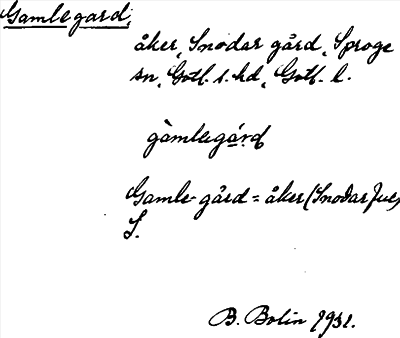 Gamlegard,
åker, Snodar gård, Sproge
sn, Gotl. s. hd, Gotl. l.
gàmlegá̱rd
Gamle-gård = åker (Snodar
S.
B. Bolin 1931.